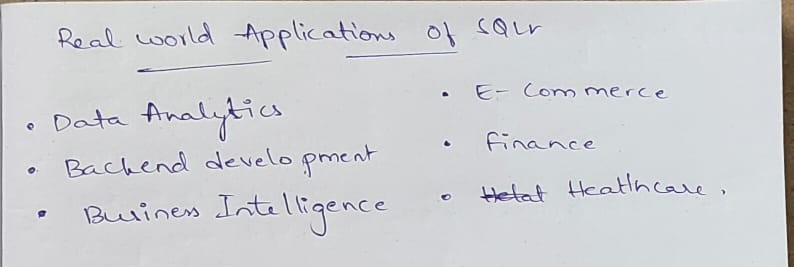 Real world Applications of SQL
• Data Analytics
• Backend development
• Business Intelligence
• E-Commerce
• Finance
• Healthcare.